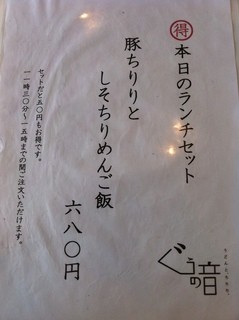 得 本日のランチセット
豚ちりりと
しそちりめんご飯
六八〇円
セットだと五〇円もお得です。
一一時三〇分~一五時までの間ご注文いただけます。
ぐうの音